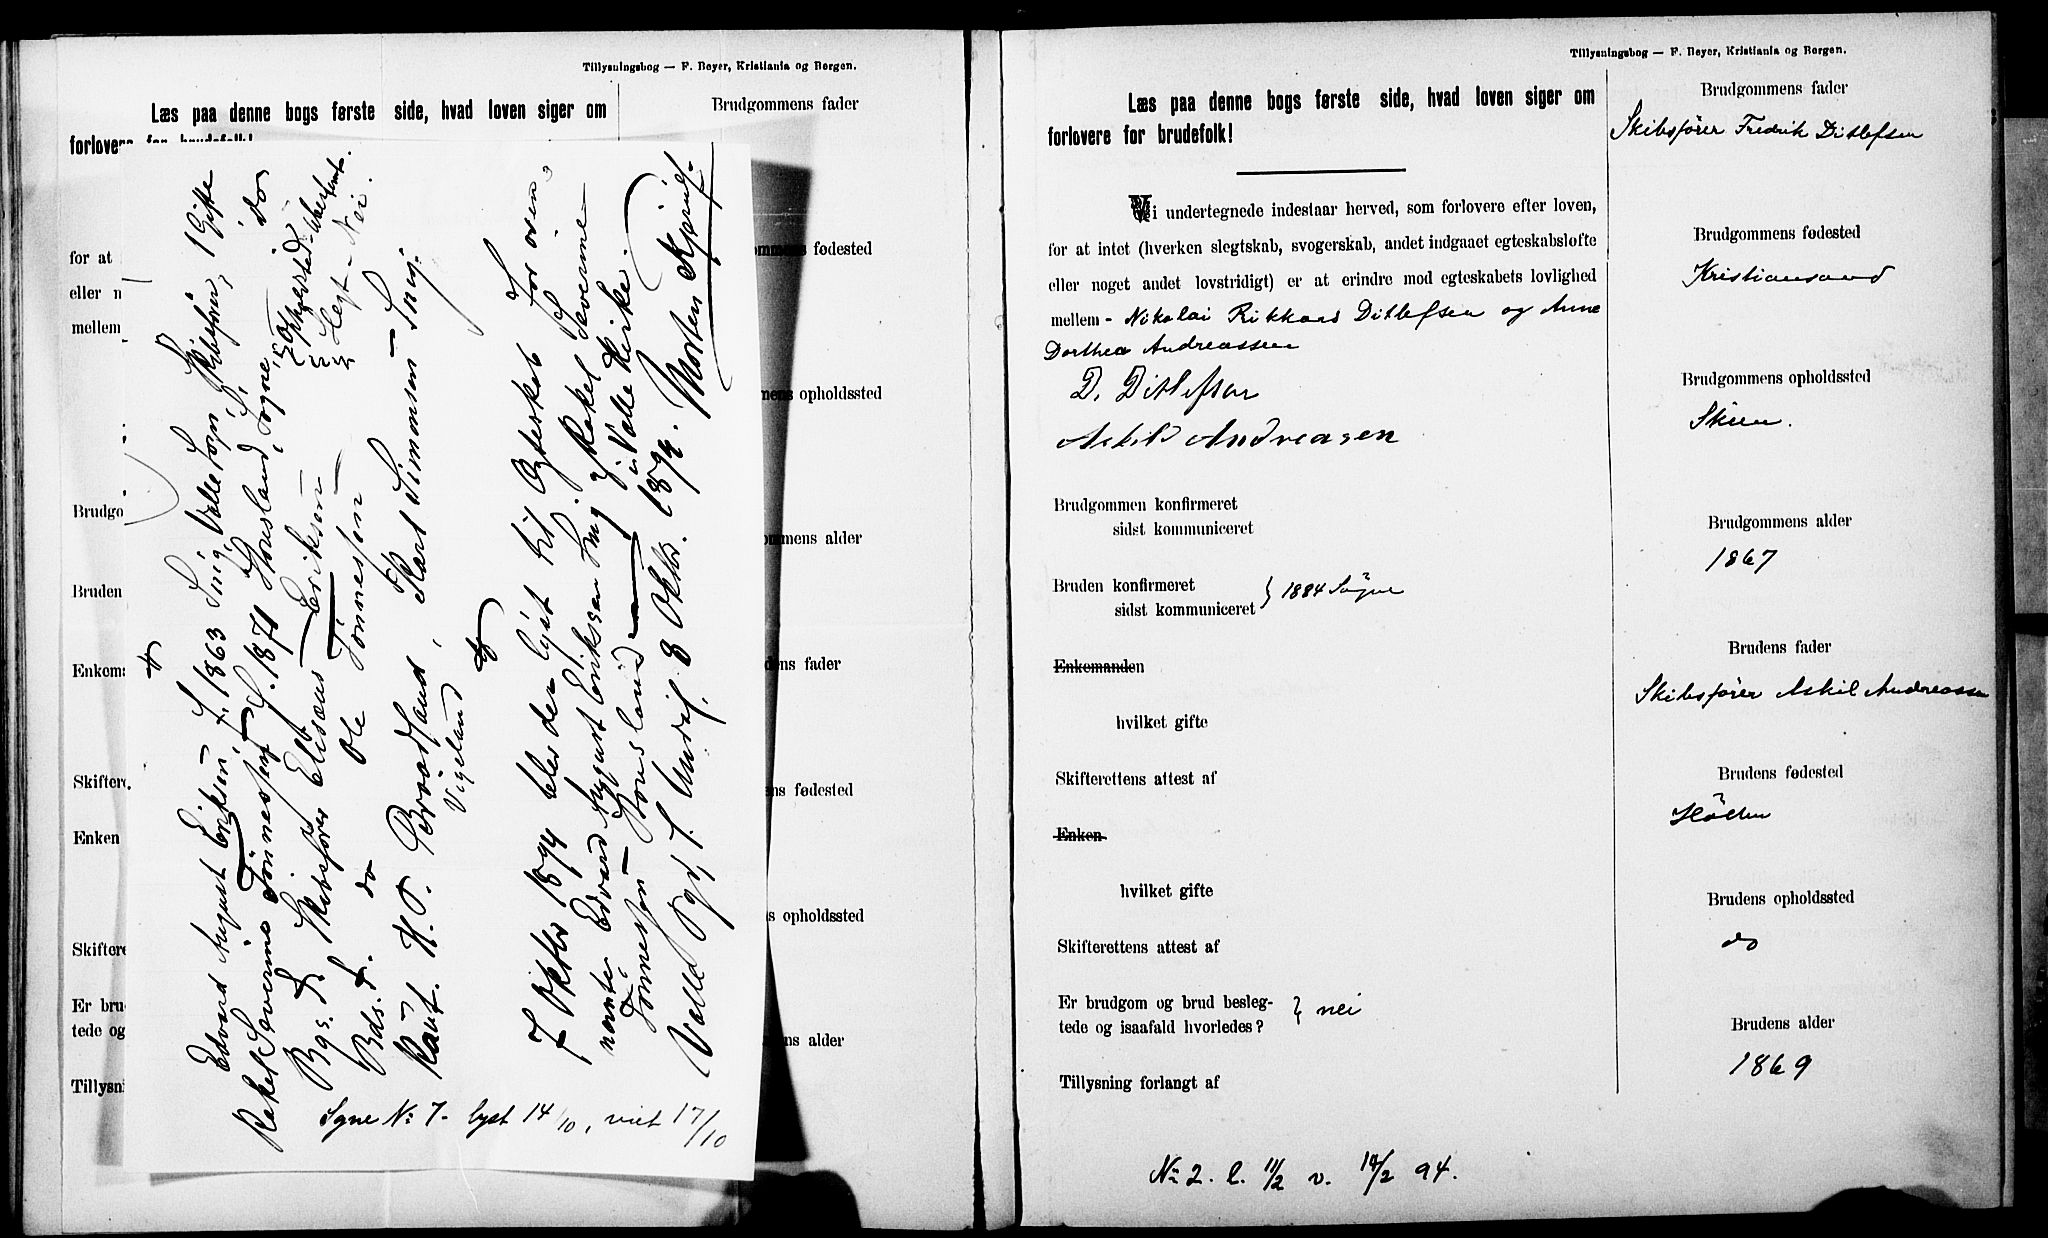 Tillysningsbog — F. Beyer, Kristiania og Bergen.
Læs paa denne bogs første side, hvad loven siger om
forlovere for brudefolk!
Brudgommens fader
for at
eller n
mellem
fødested
opholdssted
Brudgo
mmens alder
Bruden
Enkema
dens fader
Skiftere
ns fødested
Enken
Skiftere
s opholdssted
Er bru
tede og
ns alder
Tillysni
Edvard August Eriksen, f. 1863 Snig, Valle sogn, Skibsfører, 1 Gifte
Rakel Severine Tönnessen f. 1871 Housland, Sögne, do
Bgs. F. Skibsfører Eliseus Eriksen
Bds. F. do Ole Tönnessen
Slegt - Nei.
Kaut. H. O. Brödsand, Karl Simonsen - Snig.
Vigeland
7 Oktbr 1894 blev der lyst til Ægteskab for oven-
nævnte Edvard August Eriksen Snig og Rakel Severine
Tönnessen Housland i Valle Kirke.
Valle Sogn, 8 Oktbr. 1894. Morten Kjerulf.
Sgne No 7. lyst 14/10, viet 17/10
Tillysningsbog — F. Beyer, Kristiania og Bergen.
Læs paa denne bogs første side, hvad loven siger om
forlovere for brudefolk!
Vi undertegnede indestaar herved, som forlovere efter loven,
for at intet (hverken slegtskab, svogerskab, andet indgaaet egteskabsløfte
eller noget andet lovstridigt) er at erindre mod egteskabets lovlighed
mellem - Nikolai Rikkard Ditlefsen og Anne
Dorthea Andreassen
D. Ditlefsen
Askild Andreasen
Brudgommen konfirmeret
sidst kommuniceret
Bruden konfirmeret
sidst kommuniceret } 1884 Sögne
Enkemanden
hvilket gifte
Skifterettens attest af
Enken
hvilket gifte
Skifterettens attest af
Er brudgom og brud besleg-
tede og isaafald hvorledes? } nei
Tillysning forlangt af
No 2. l. 11/2 v. 14/2 94.
Brudgommens fader
Skibsfører Fredrik Ditlefsen
Brudgommens fødested
Kristianssand
Brudgommens opholdssted
Skien.
Brudgommens alder
1867
Brudens fader
Skibsfører Askil Andreassen
Brudens fødested
Höllen
Brudens opholdssted
do
Brudens alder
1869